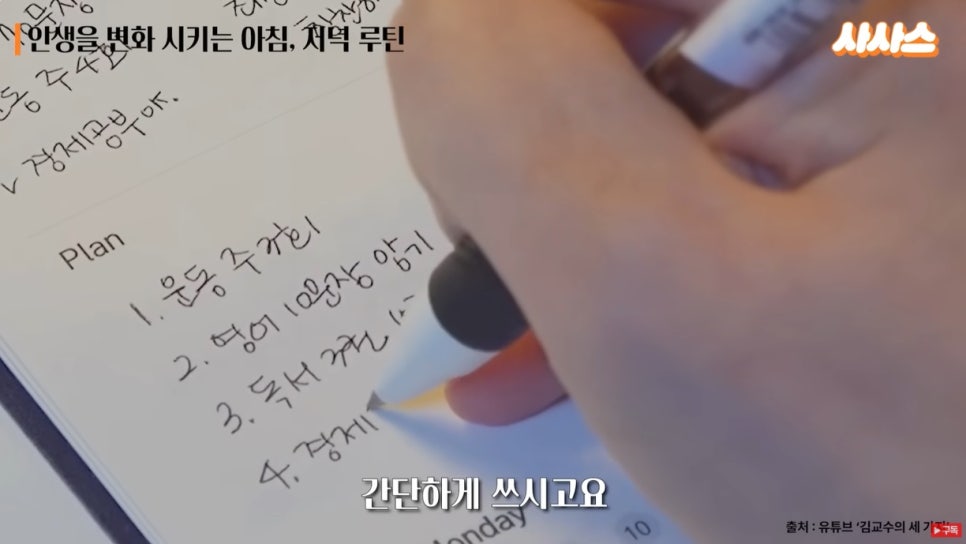 인생을 변화 시키는 아침, 저녁 루틴
시사스
운동 주 4
v 경제공부야.
Plan
1. 운동 주 4회
2. 영어 10문장 암기
3. 독서
4. 경제
간단하게 쓰시고요
Monday
10
출처 : 유튜브 '김교수의 세 가지'
구독